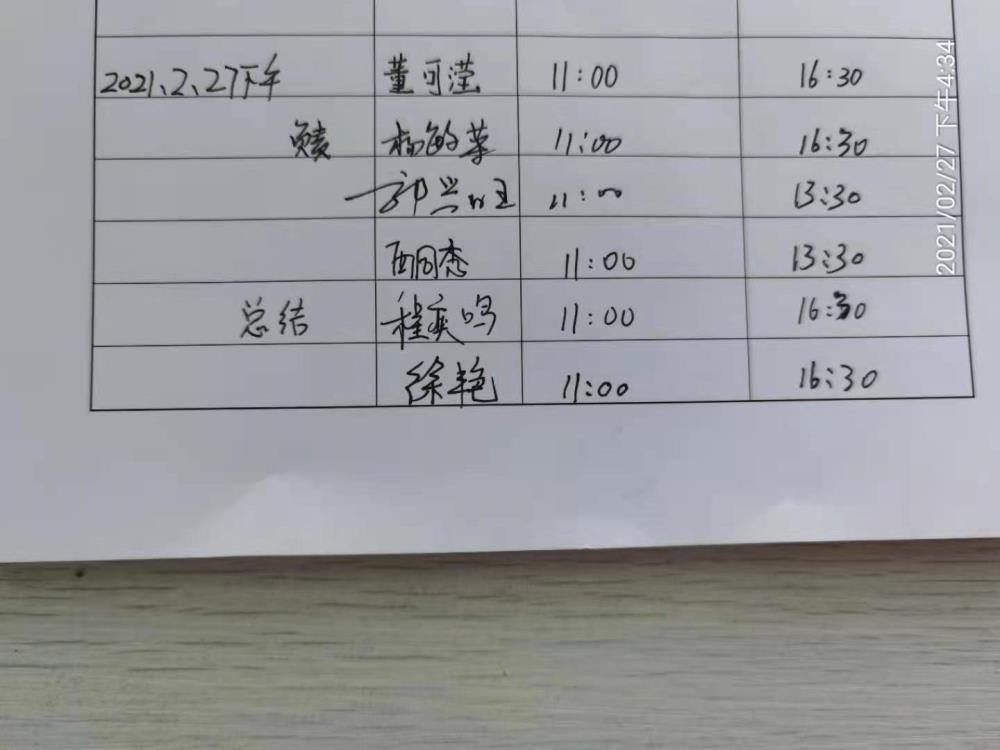 2021、2、27下午 董可滢 11:00 16:30
杨敏菜 11:00 16:30
郭兴旺 11:00 13:30
11:00 13:30
总结 程奕鸣 11:00 16:30
徐艳 11:00 16:30
2021/02/27 下午4:34